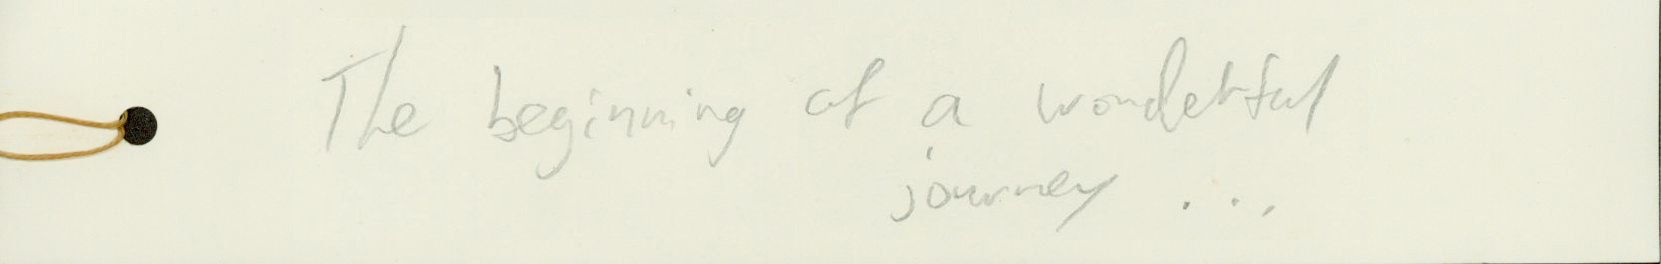 The beginning of a wonderful
journey ...